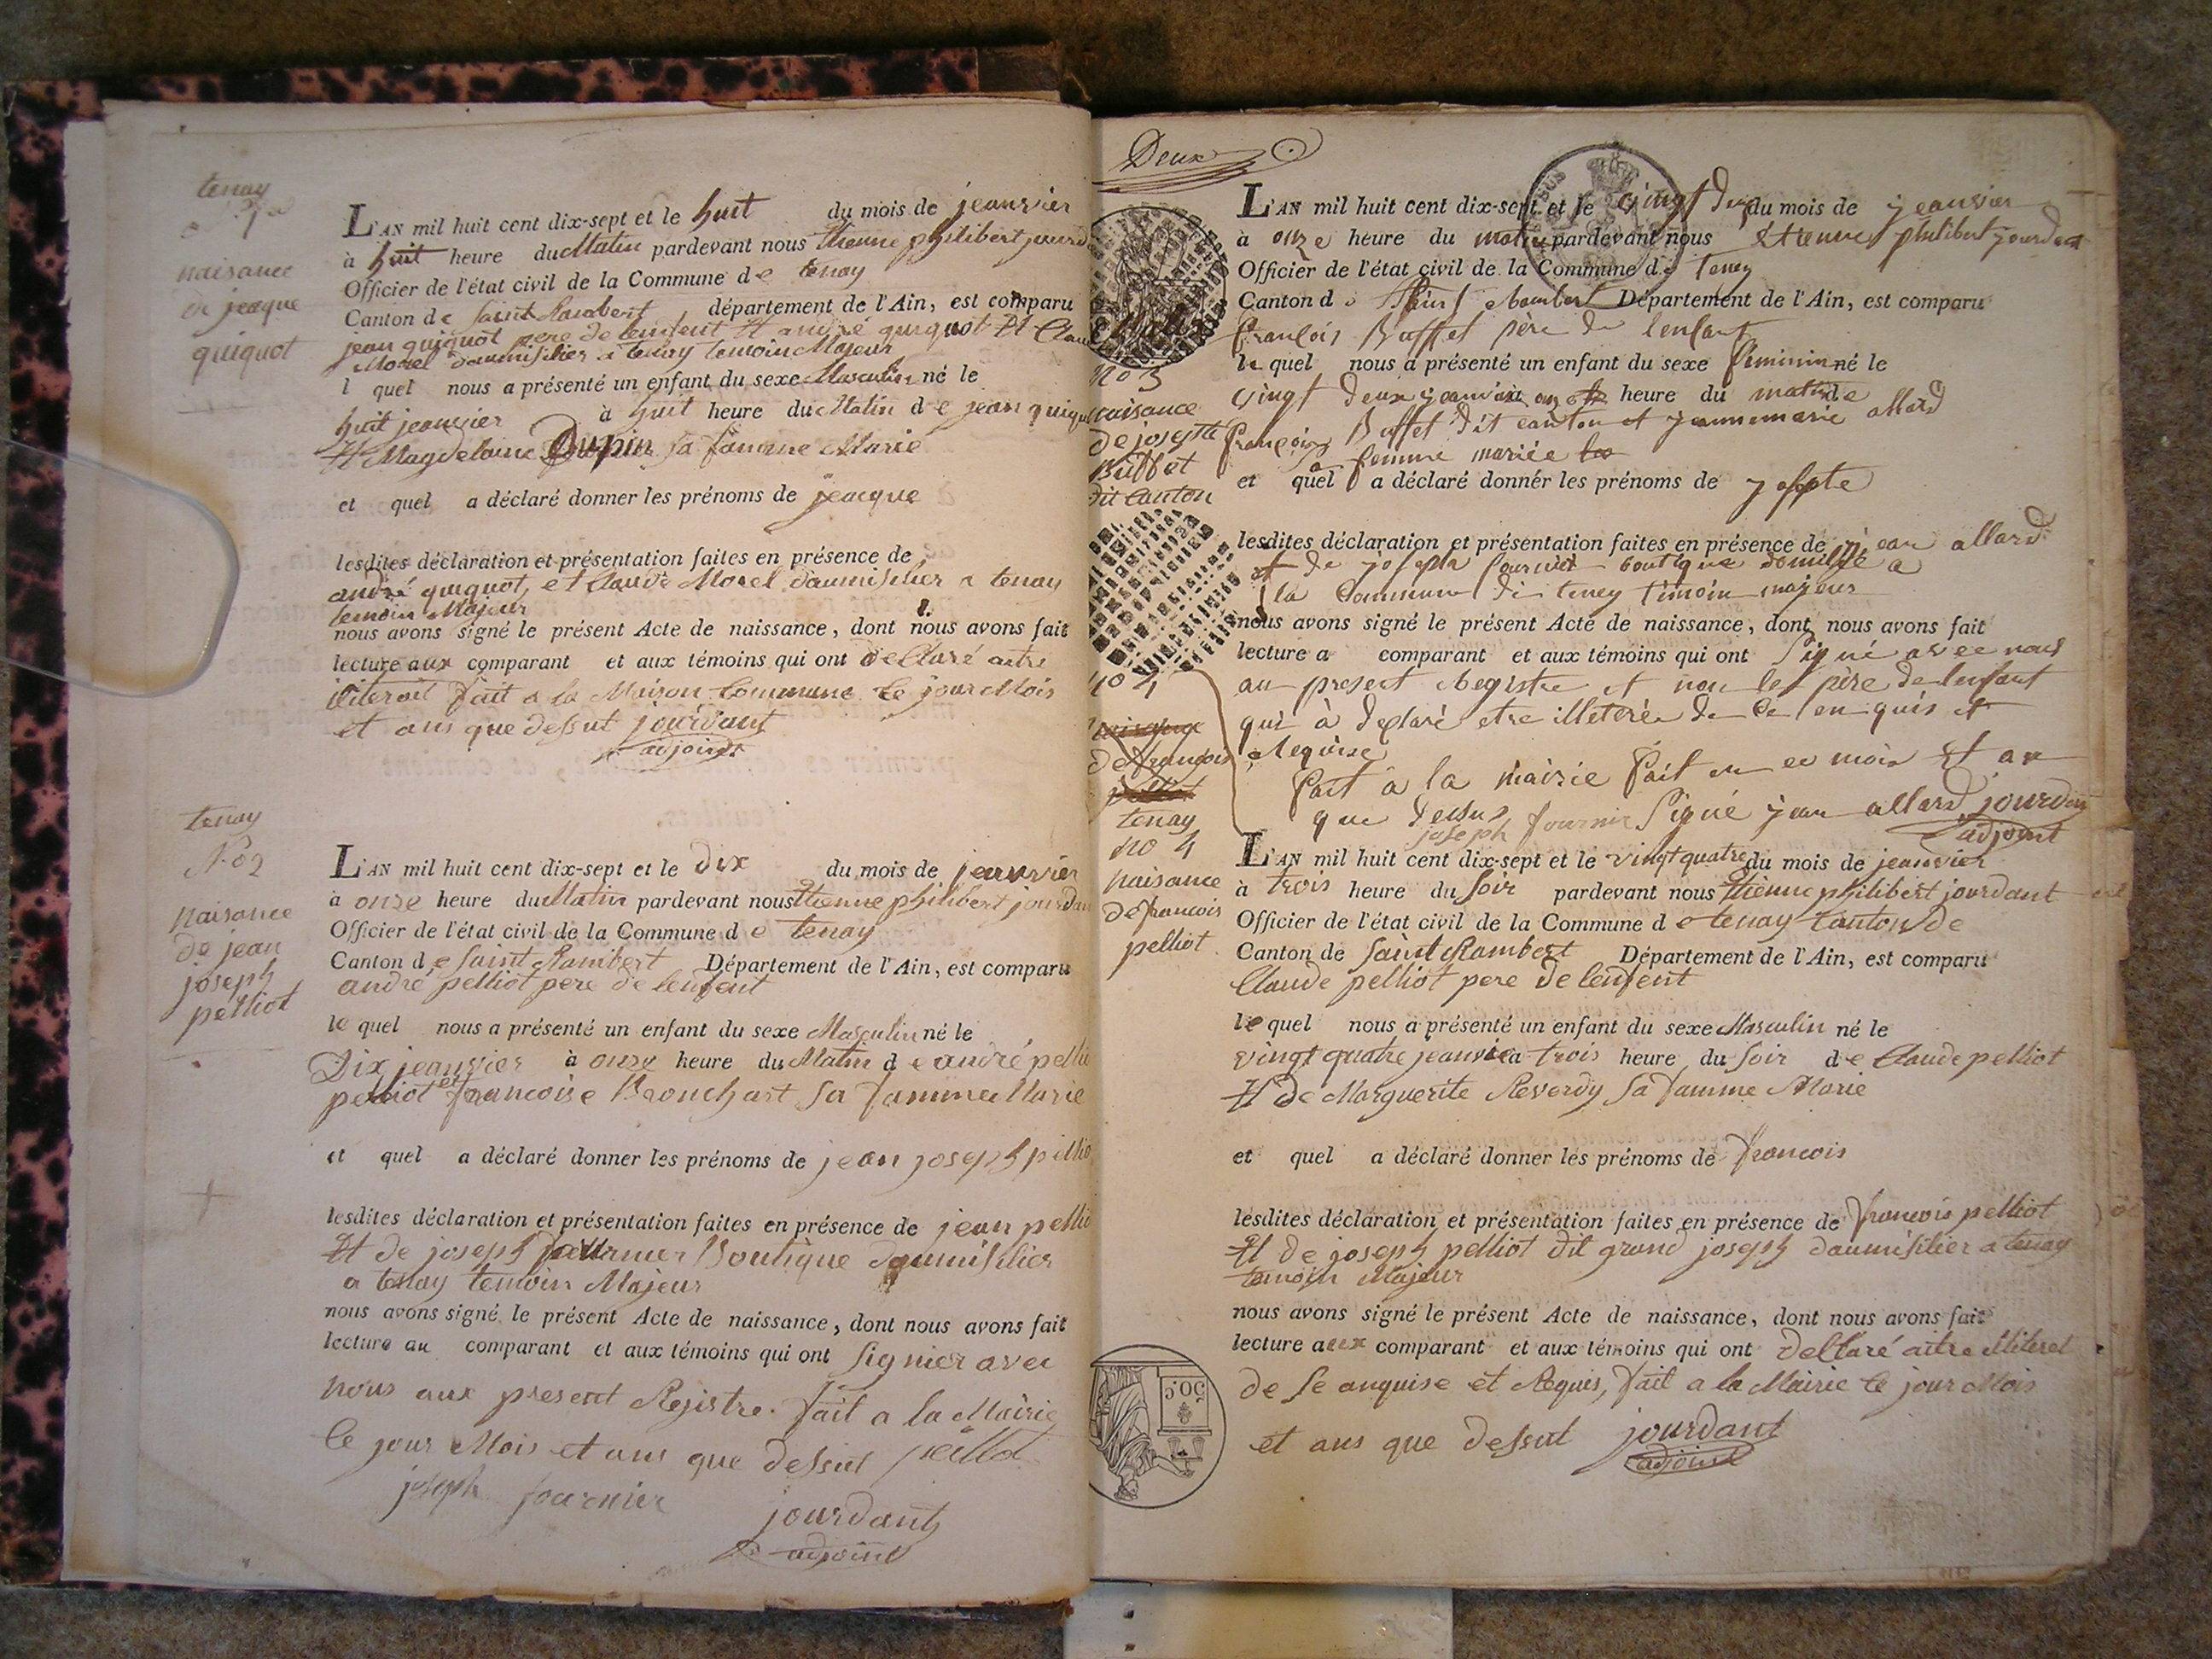 tenay
naisance
de jeaque
quiquot
L'AN mil huit cent dix-sept et le huit du mois de jeanvier
à huit heure du Matin pardevant nous Etienne philibert jourd
Officier de l'état civil de la Commune de tenay
Canton de Saint Rambert département de l'Ain, est comparu
jean quiquot pere de lenfent Et andré quiquot Et Clau
Morel daumisilier a tenay temoin Majeur
l quel nous a présenté un enfant du sexe Masculin né le
huit jeanvier à huit heure du Matin de jean quiqu
Et Magdelaine Dupin sa famme Marie
et quel a déclaré donner les prénoms de jeacque
lesdites déclaration et présentation faites en présence de
andré quiquot, et Claude Morel daumisilier a tenay
temoin Majeur
nous avons signé le présent Acte de naissance, dont nous avons fait
lecture aux comparant et aux témoins qui ont declaré aitre
fait a la Maison Commune le jour Mois
et ans que dessut jourdant
adjoint
tenay
No 2
naisance
de jean
joseph
pelliot
L'AN mil huit cent dix-sept et le dix du mois de jeanvier
à onze heure du Matin pardevant nous Etienne philibert jourdan
Officier de l'état civil de la Commune de tenay
Canton de Saint Rambert Département de l'Ain, est comparu
andré pelliot pere de lenfent
le quel nous a présenté un enfant du sexe Masculin né le
Dix jeanvier à onze heure du Matin de andré pellio
pelliot et francoise Bronchart sa famme Marie
et quel a déclaré donner les prénoms de jean joseph pellio
lesdites déclaration et présentation faites en présence de jean pellio
Et de joseph fournier Boutique daumisilier
a tenay temoin Majeur
nous avons signé le présent Acte de naissance, dont nous avons fait
lecture au comparant et aux témoins qui ont signier avec
nous aux present Registre. fait a la Mairie
le jour Mois et ans que dessut
joseph fournier
jourdant
adjoint
Deux
no 3
naissance
de josepte
Buffet
dit Canton
L'AN mil huit cent dix-sept et le vingt deux du mois de jeanvier
à onze heure du matin pardevant nous Etienne philibert jourdan
Officier de l'état civil de la Commune de teney
Canton de Saint Rambert Département de l'Ain, est comparu
françois Buffet père de lenfant
le quel nous a présenté un enfant du sexe feminin né le
vingt deux jeanvier à onze heure du matin de
françois Buffet dit canton et jeannemarie allard
sa femme mariée
et quel a déclaré donner les prénoms de josepte
lesdites déclaration et présentation faites en présence de jean allard
et de joseph fournier boutique domicilié a
la Commune de teney témoin majeur
nous avons signé le présent Acte de naissance, dont nous avons fait
lecture a comparant et aux témoins qui ont signé avec nous
au present Registre et non le père de lenfant
qui à déclaré etre illeterée de ce enquis et
Requise
fait à la mairie fait en ce mois et an
que dessus signé jean allard jourdan
joseph fournier adjoint
no 4
naisance
de francois
tenay
no 4
naisance
de francois
pelliot
L'AN mil huit cent dix-sept et le vingt quatre du mois de jeanvier
à trois heure du soir pardevant nous Etienne philibert jourdant
Officier de l'état civil de la Commune de tenay Canton de
Canton de Saint Rambert Département de l'Ain, est comparu
Claude pelliot pere de lenfent
le quel nous a présenté un enfant du sexe Masculin né le
vingt quatre jeanvier à trois heure du soir de Claude pelliot
Et de Marguerite Reverdy sa famme Marie
et quel a déclaré donner les prénoms de francois
lesdites déclaration et présentation faites en présence de francois pelliot
Et de joseph pelliot dit grand joseph daumisilier a tenay
temoin Majeur
nous avons signé le présent Acte de naissance, dont nous avons fait
lecture aux comparant et aux témoins qui ont declaré aitre illiteret
de se anquise et Requis, fait a la Mairie le jour Mois
et ans que dessut jourdant
adjoint
50 C